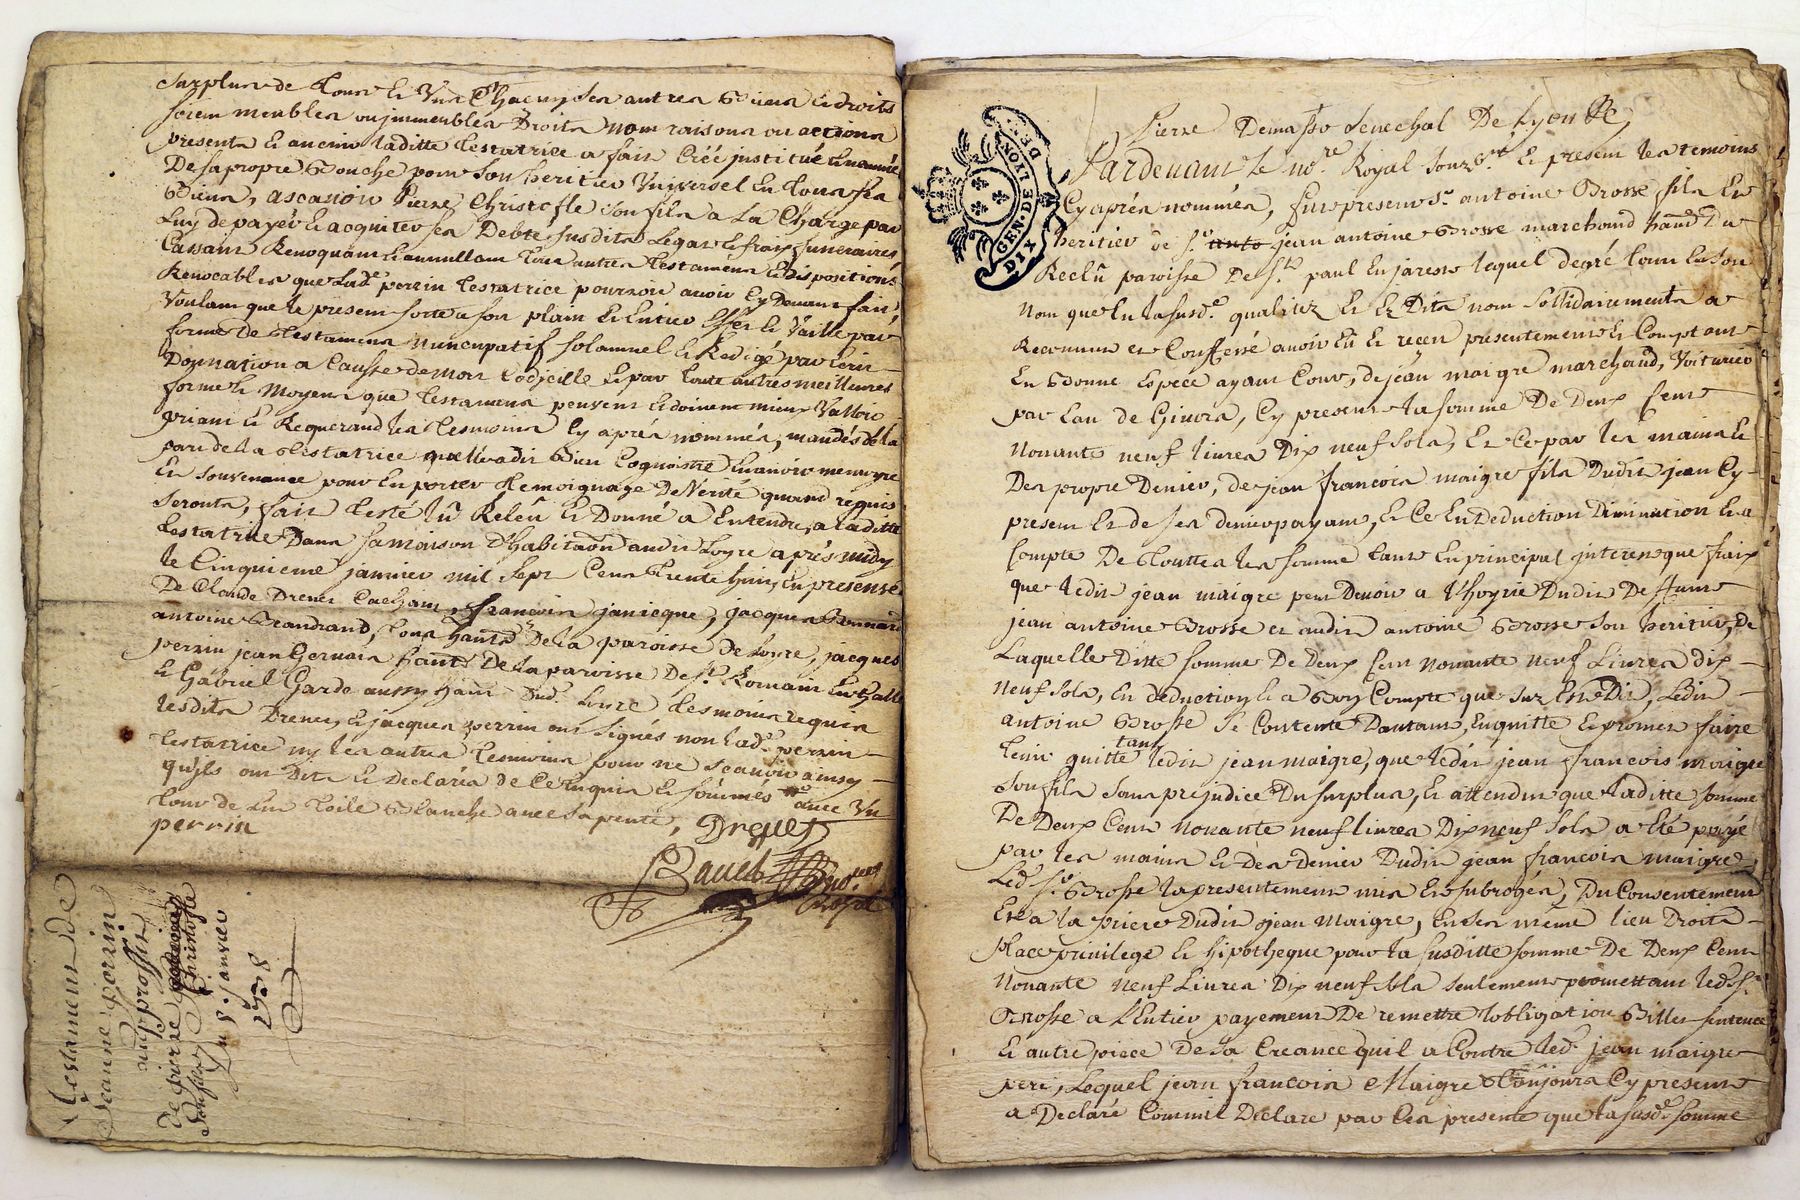 surplus de tous et uns chacuns ses autres biens et droits
soient meubles ou jmmeubles Droits nom raisons ou actions
presents et avenir laditte testatrice a fait créé jnstitué et nommé
De sa propre bouche pour son heritier Universel en tous ses
biens, ascavoir Pierre Christofle son fils a La Charge par
Luy de payer et acquiter ses Debtes susdits Legats et frais funeraires
Cassant Revoquant et annullant tous autres testamens et dispositions
Revocables que lad.e perrin testatrice pourroit avoir Cy Devant fait,
Voulant que le present sorte a son plain et Entier Effet et Vaille par
forme de testament nuncupatif solamnel et Redigé par écrit
Donnation a Causse de mort Codjcille et par toute autres meilleures
forme et Moyens que testamens peuvent et doivent mieux Valloir
priant et Requerand les tesmoins Cy aprés nommés, mandés de la
part de la testatrice quelle a dit bien Cognoistre d'en avoir memoyre
Et souvenance pour En porter temoignage De Verité quand requis
seronts, fait testé lû Relëu et Donné a Entendre, a laditte
testatrice Dans sa maison d'habitaon audit Loyre aprés midy
le Cinquieme janvier mil sept Cens trente huit, En presense
De Claude Drevet francois janicque, jacques Bonnard
antoine Grandrand, tous hants De la paroisse de Loyre, jacques
perrin jean Gervais hant De la paroisse De St. Romain
et Gabriel Garde aussy hant dud. Loyre tesmoins requis
lesdits Drevet, et jacques perrin ont signés non lad.e perrin
testatrice ny les autres tesmoins pour ne scavoir ainsy
qu'jls ont Dits et Declarés de Ce Enquis et sommés avec Un
tour de lit toile blanche avec sa pente,
perrin
Drevet
no.re
Royal
Testament de
Jeanne perrin
au proffit
de pierre Christofle
son filz
Du 5.e janvier
1738
Pierre Demasso Senechal De Lyon &c,
Pardevant le no.re Royal souz.né et present les temoins
Cy aprés nommés, fut present S.r antoine Brosse fils et
heritier de S.r anto jean antoine Brosse marchand hant Du
Reclû paroisse De St. paul En jarest lequel degré tant En son
nom que En la susd.e qualitez et Es Dits nom sollidairements a
Reconnus et Confessé avoir Eû et reçeu presentement et Comptant
En bonne Espece ayant Cour, de jean maigre marchand, Voiturier
par Eau de Givors, Cy present la somme De Deux Cent
Nonante neuf livres Dix neuf sols, Et Ce par les mains et
Des propre Denier, de jean francois maigre fils Dudit jean Cy
present Et de ses deniers payant, Et Ce En Deduction Diminution Et a
Compte De toutte les somme tant En principal jnterest que fraix
que ledit jean maigre peut Devoir a l'hoyrie Dudit Deffunt
jean antoine Brosse et audit antoine Brosse son heritier, De
Laquelle Ditte somme De Deux Cent Nonante neuf Livres dix
neuf sols, En déduction et a bon Compte que sus Est Dit, Ledit
antoine Brosse se Contente Dautant, En quitte Et promet faire
tenir quitte tant ledit jean maigre, que ledit jean francois maigre
son fils sans prejudice Du surplus, Et attendu que laditte somme
De Deux Cent Nonante neuf livres Dix neuf sols a Eté payé
par les mains Et Des Denier Dudit jean francois maigre,
Led. S.r Brosse la presentement mis Et subrogés, Du Consentement
Et a la priere Dudit jean maigre, En ses même lieu Droits
place privilege et hipotheque pour la susditte somme De Deux Cent
Nonante neuf Livres Dix neuf sols seulement promettant led. S.r
Brosse a L'Entier payement De remettre lobligation Billet sentence
et autre piece De sa Creance quil a Contre led. jean maigre
pere, Lequel jean francois Maigre toujours Cy present
a Declaré Comme Declare par Ces presente que la susd.e somme
GEN. DE LYON
DIX